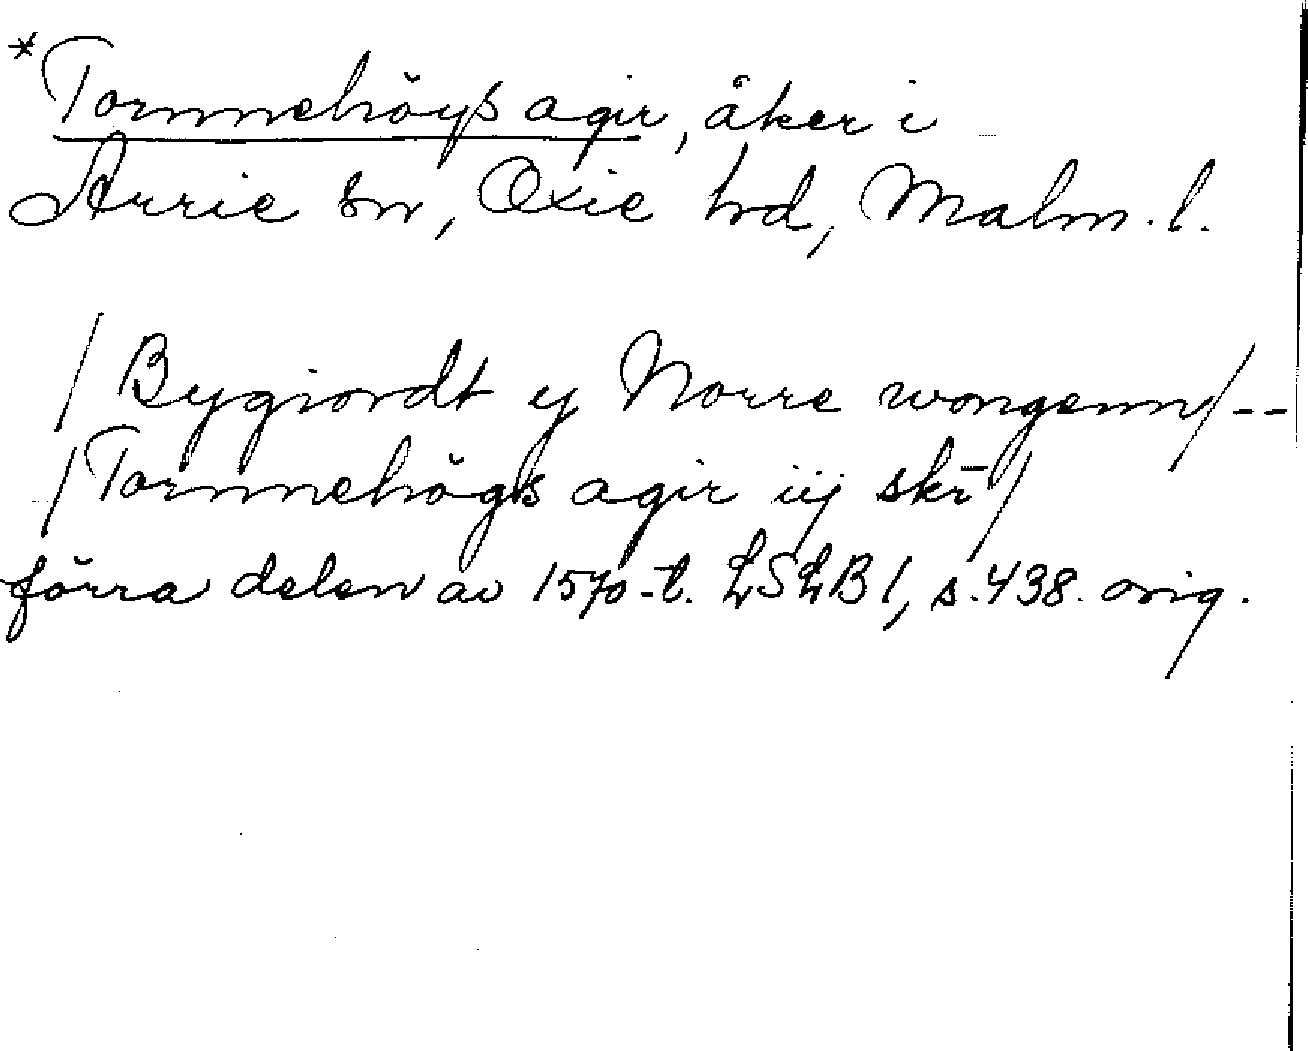 *Tornnehöyß agir, åker i
Arrie sn, Oxie hd, Malm. l.
/ Bygiordt y Norre wongenn / --
/ Tornnehögß agir iij skr /
förra delen av 1570-t. LSLB 1, s. 438. orig.